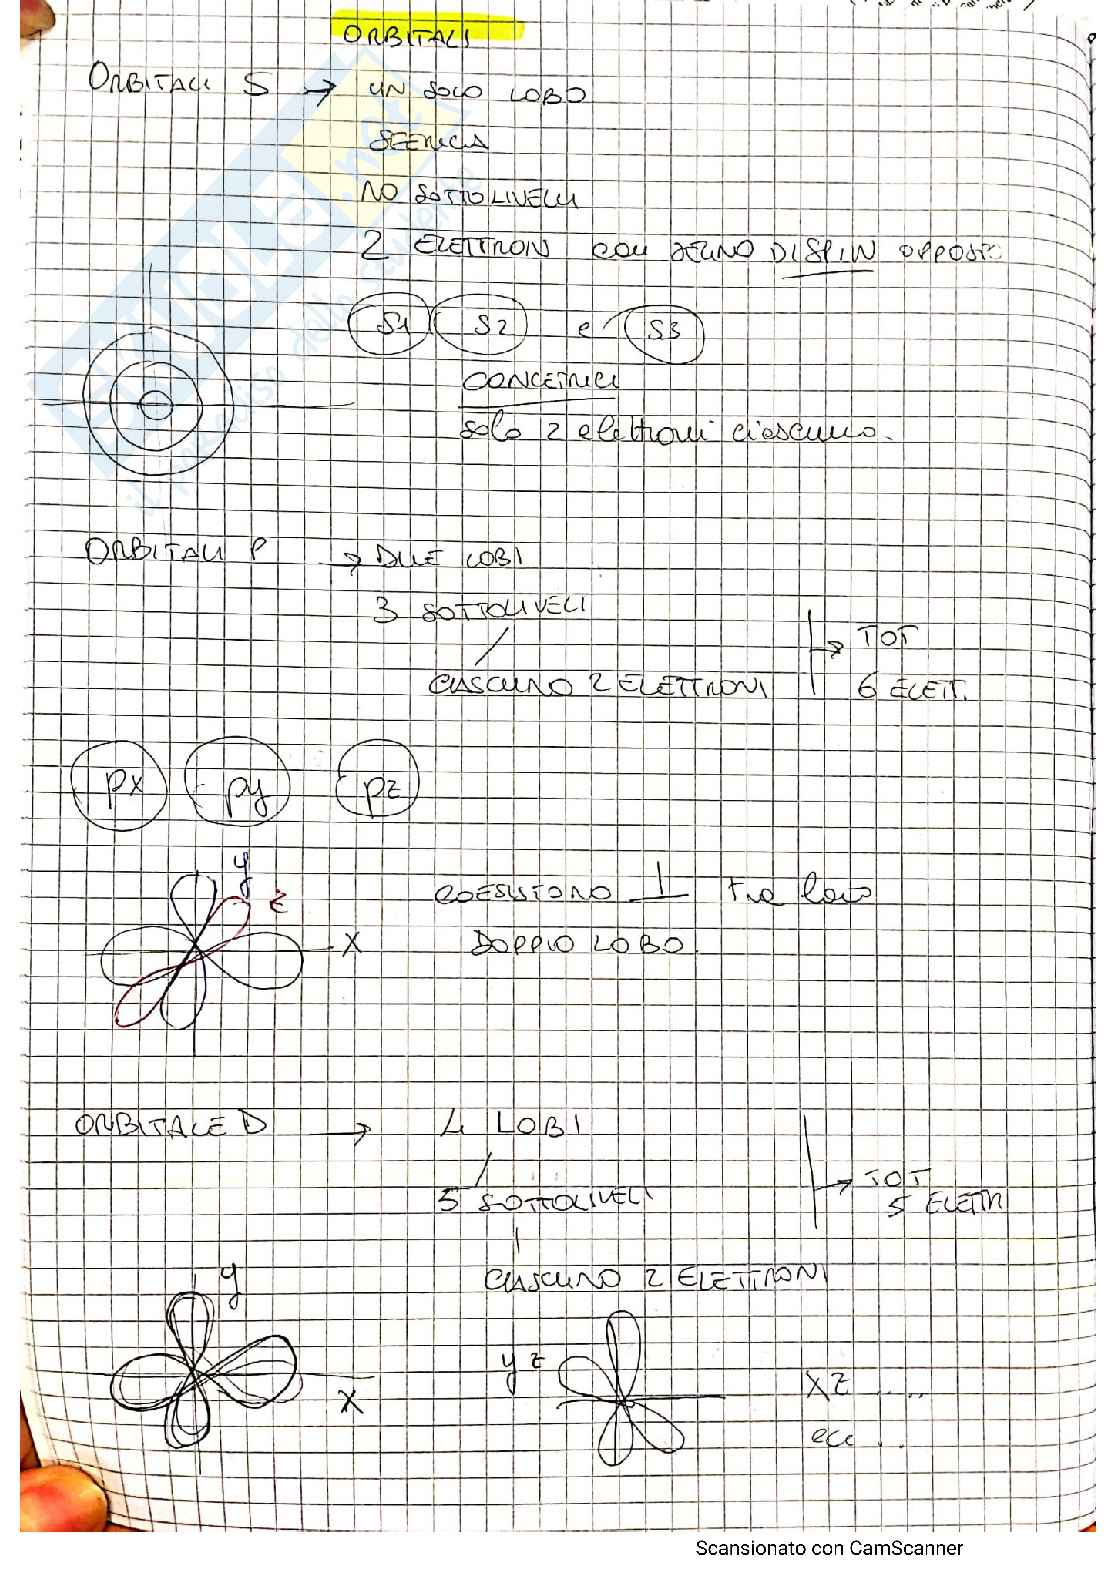 ORBITALI
ORBITALI S → UN SOLO LOBO
SFERICA
NO SOTTOLIVELLI
2 ELETTRONI con SEGNO DI SPIN OPPOSTO
S1 S2 e S3
CONCETRICI
solo 2 elettroni ciascuno.
ORBITALI P → DUE LOBI
3 SOTTOLIVELI
CIASCUNO 2 ELETTRONI
→ TOT
6 ELETT.
px py pz
y
z
x
COESISTONO ⊥ tra loro
DOPPIO LOBO.
ORBITALE D → 4 LOBI
5 SOTTOLIVELI
→ TOT
5 ELETTR
CIASCUNO 2 ELETTRONI
y
x
yz
XZ .....
ecc ...
Scansionato con CamScanner